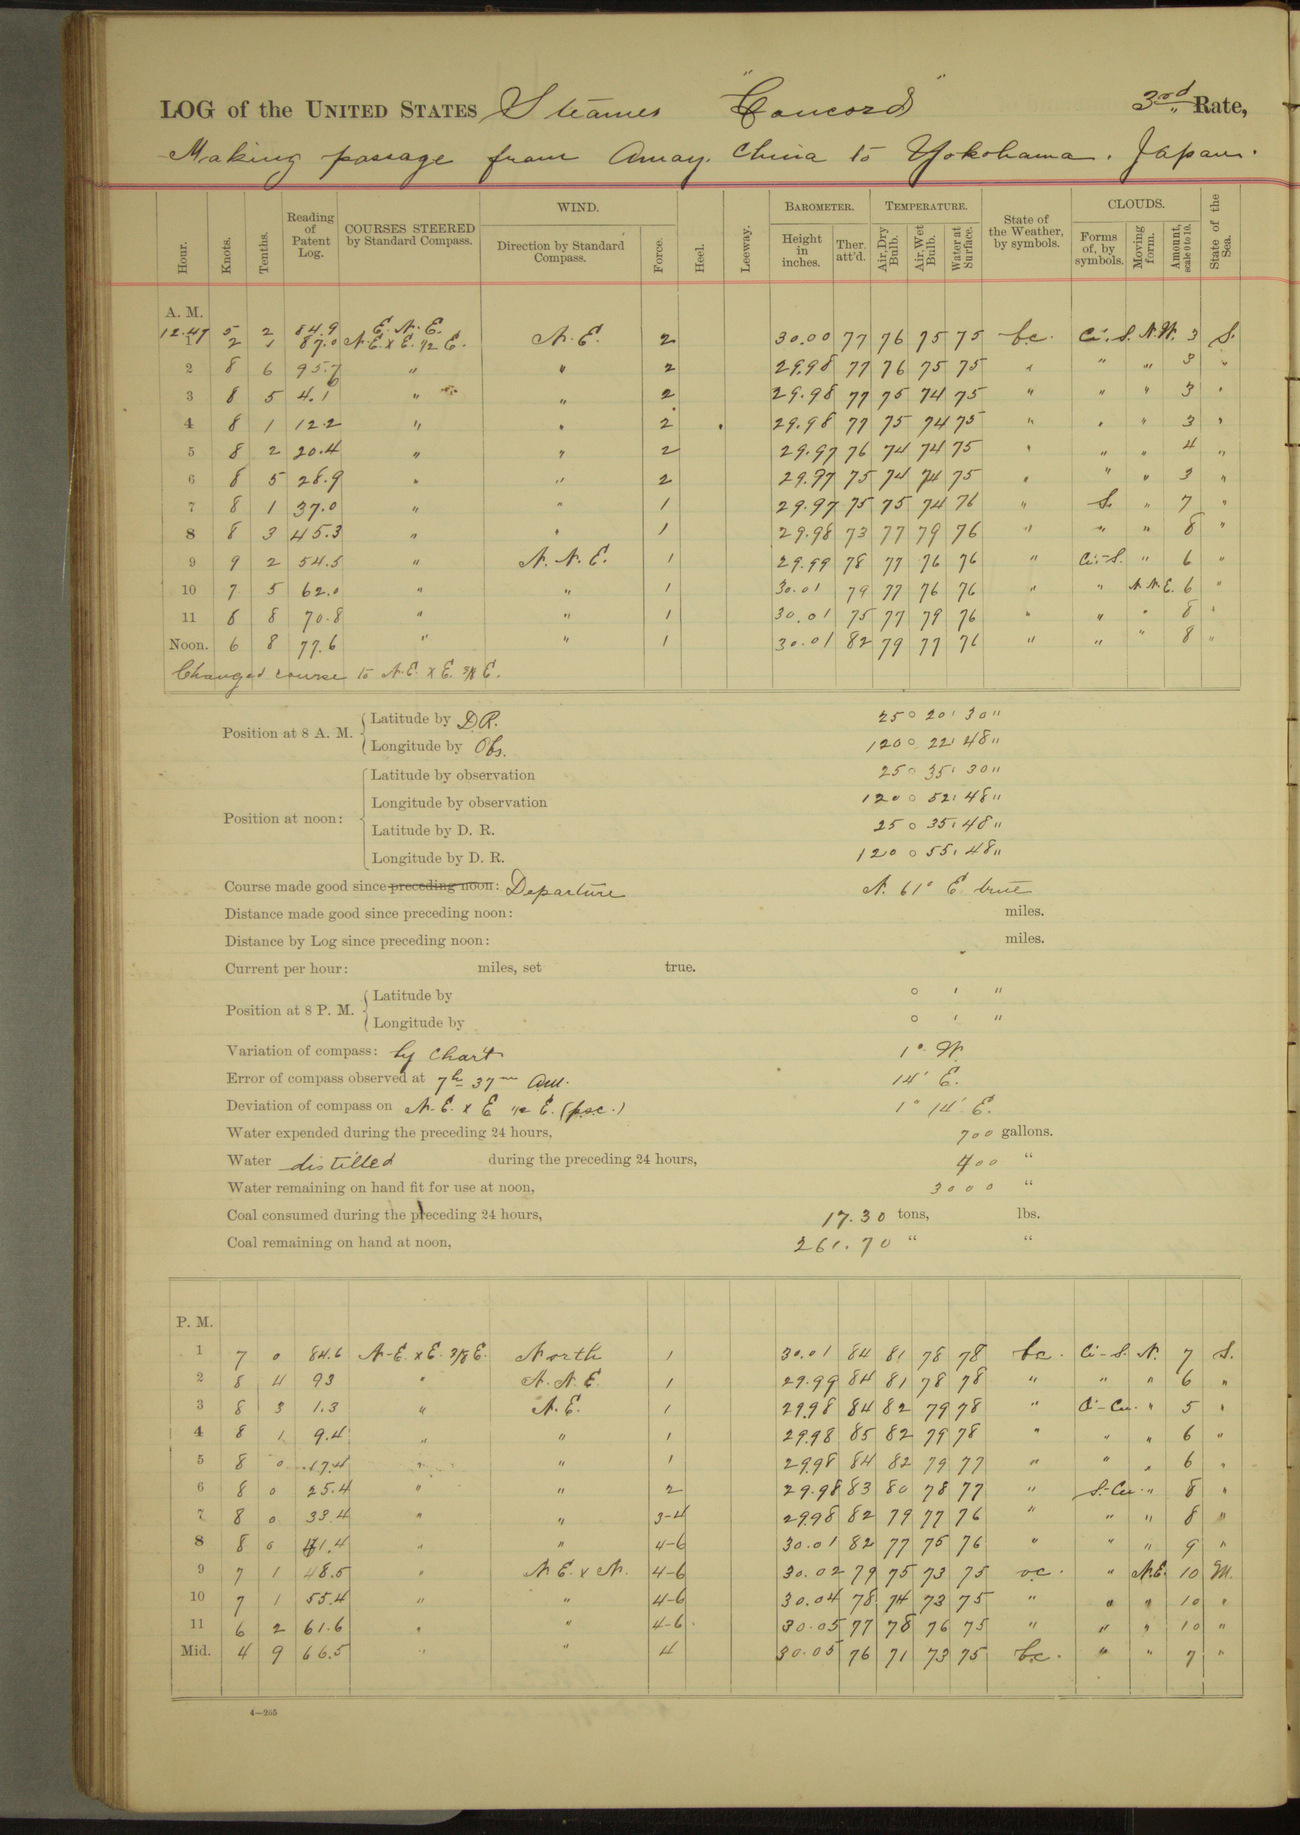 LOG of the UNITED STATES Steamer "Concord" 3rd Rate,
Making passage from Amoy, China to Yokohama, Japan.
Hour. Knots. Tenths. Reading of Patent Log. COURSES STEERED by Standard Compass. WIND. Direction by Standard Compass. Force. Heel. Leeway. BAROMETER. Height in inches. Ther. att'd. TEMPERATURE. Air, Dry Bulb. Air, Wet Bulb. Water at Surface. State of the Weather, by symbols. CLOUDS. Forms of, by symbols. Moving form. Amount, scale 0 to 10. State of the Sea.
A. M.
12.47 5 2 84.9 E. N. E.
1 2 1 87.0 N.E. x E. 1/2 E. N. E. 2 30.00 77 76 75 75 b.c. Ci.-S. N.W. 3 S.
2 8 6 95.7 " " 2 29.98 77 76 75 75 " " " 3 "
3 8 5 4.1 " " 2 29.98 77 75 74 75 " " " 3 "
4 8 1 12.2 " " 2 29.98 77 75 74 75 " " " 3 "
5 8 2 20.4 " " 2 29.97 76 74 74 75 " " " 4 "
6 8 5 28.9 " " 2 29.97 75 74 74 75 " " " 3 "
7 8 1 37.0 " " 1 29.97 75 75 74 76 " S. " 7 "
8 8 3 45.3 " " 1 29.98 73 77 79 76 " " " 8 "
9 9 2 54.5 " N. N. E. 1 29.99 78 77 76 76 " Ci.-S. " 6 "
10 7 5 62.0 " " 1 30.01 79 77 76 76 " " N.N.E. 6 "
11 8 8 70.8 " " 1 30.01 75 77 79 76 " " " 8 "
Noon. 6 8 77.6 " " 1 30.01 82 79 77 76 " " " 8 "
Changed course to N.E. x E. 3/8 E.
Position at 8 A. M. Latitude by D.R. 25° 20' 30"
Longitude by Obs. 120° 22' 48"
Position at noon: Latitude by observation 25° 35' 30"
Longitude by observation 120° 52' 48"
Latitude by D. R. 25° 35' 48"
Longitude by D. R. 120° 55' 48"
Course made good since preceding noon: Departure N. 61° E. true
Distance made good since preceding noon: miles.
Distance by Log since preceding noon: miles.
Current per hour: miles, set true.
Position at 8 P. M. Latitude by ° ' "
Longitude by ° ' "
Variation of compass: by chart 1° W.
Error of compass observed at 7h 37m am. 14' E.
Deviation of compass on N.E. x E 1/2 E. (p.s.c.) 1° 14' E.
Water expended during the preceding 24 hours, 700 gallons.
Water distilled during the preceding 24 hours, 400 "
Water remaining on hand fit for use at noon, 3000 "
Coal consumed during the preceding 24 hours, 17.30 tons, lbs.
Coal remaining on hand at noon, 261.70 " "
P. M.
1 7 0 84.6 N.E. x E. 3/8 E. North 1 30.01 84 81 78 78 b.c. Ci-S. N. 7 S.
2 8 4 93 " N. N. E. 1 29.99 84 81 78 78 " " " 6 "
3 8 3 1.3 " N. E. 1 29.98 84 82 79 78 " Ci-Cu. " 5 "
4 8 1 9.4 " " 1 29.98 85 82 79 78 " " " 6 "
5 8 0 17.4 " " 1 29.98 84 82 79 77 " " " 6 "
6 8 0 25.4 " " 2 29.98 83 80 78 77 " S.-Cu. " 8 "
7 8 0 33.4 " " 3-4 29.98 82 79 77 76 " " " 8 "
8 8 0 41.4 " " 4-6 30.01 82 77 75 76 " " " 9 "
9 7 1 48.5 " N.E. x N. 4-6 30.02 79 75 73 75 o.c. " N.E. 10 M.
10 7 1 55.4 " " 4-6 30.04 78 74 73 75 " " " 10 "
11 6 2 61.6 " " 4-6 30.05 77 78 76 75 " " " 10 "
Mid. 4 9 66.5 " " 4 30.05 76 71 73 75 b.c. " " 7 "
4—265